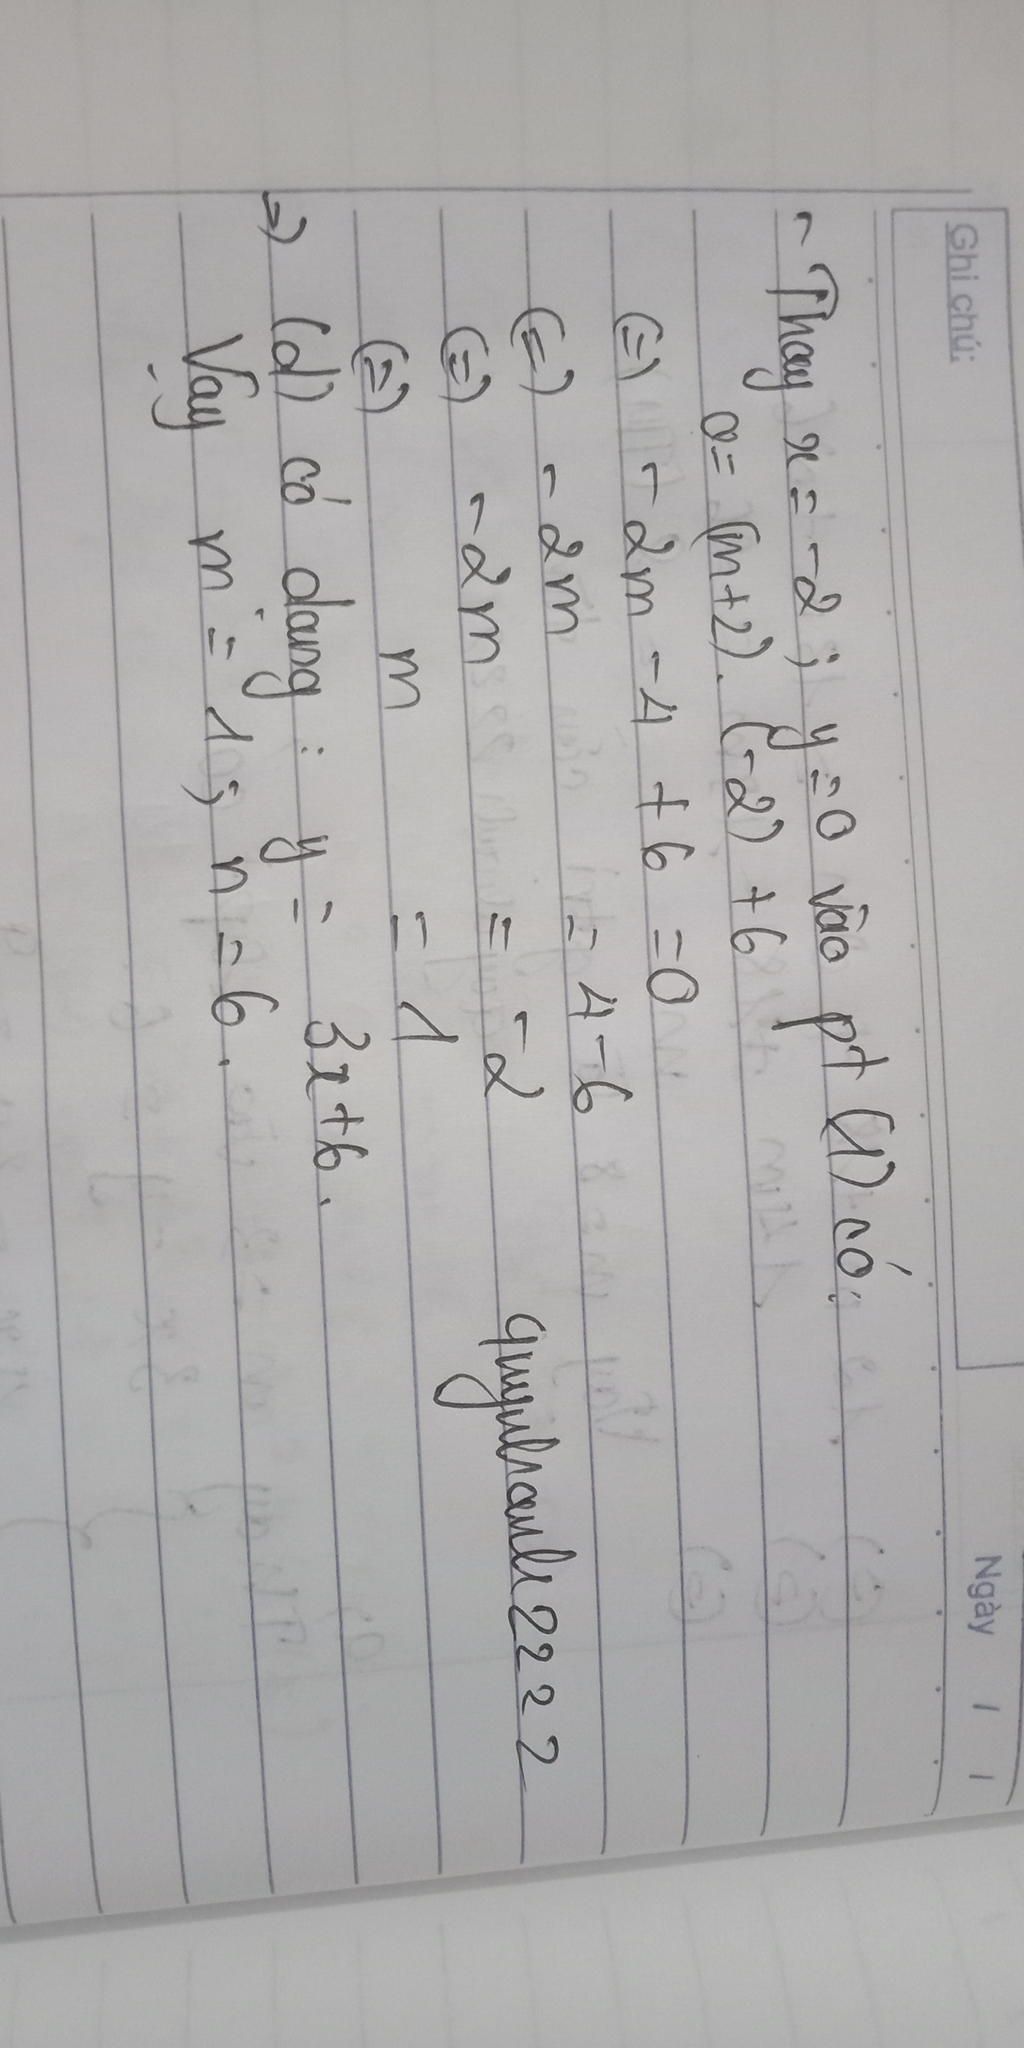 Ghi chú:
Ngày / /
- Thay x = -2 ; y = 0 vào pt (1) có:
0 = (m+2). (-2) + 6
(=) -2m -4 + 6 = 0
(=) -2m = 4 - 6
(=) -2m = -2
(=) m = 1
=) (d) có dạng : y = 3x+6.
Vậy m = 1; n = 6.
quynhanh2222